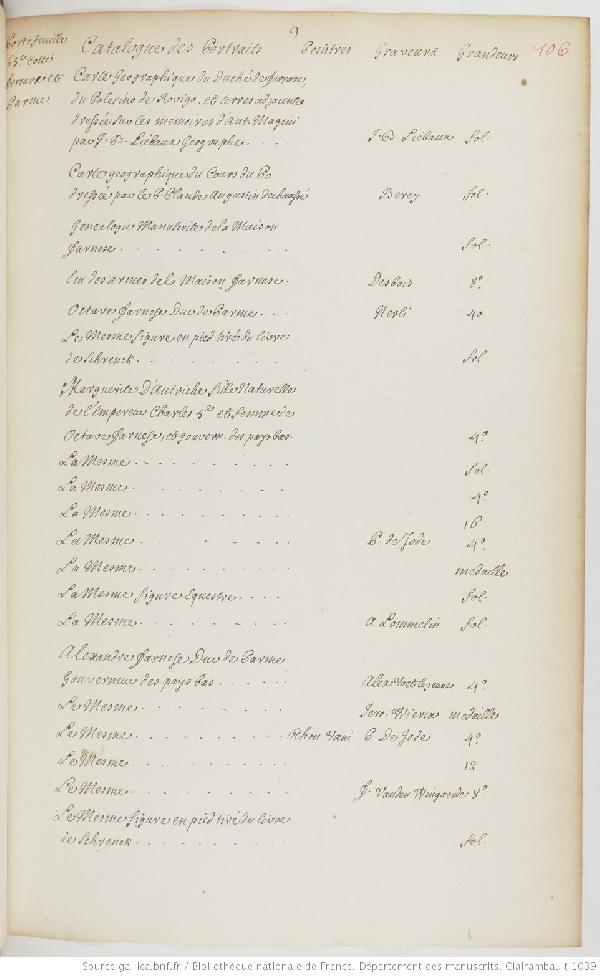 Portefeuille Catalogue des Portraits Peintres Graveurs Grandeurs 106
65e cotté
Ferrare et Carte Geographique du Duché de Ferrare,
Parme
du Polesino de Rovigo, et terres adjacentes
dressée sur les memoires d'Ant. Magini
par J. B. Liébaux Geographe . . . . J. B. Liébaux fol.
Carte geographique du Cours du Po
dressée par le P. Placide Augustin dechaussé Berey fol.
Genealogie Manuscrite de la Maison
Farnese . . . . . . . . fol.
Ecu des armes de la Maison Farnese . Desbois 8º
Octave Farnese Duc de Parme . . . Merli 4º
Le Mesme figure en pied tiré du livre
de Schrenck . . . . . . . fol
Marguerite D'Autriche fille Naturelle
de l'Empereur Charles 5e et femme de
Octave Farnese, et gouvern. des pays bas. 4º
La Mesme . . . . . . . fol.
La Mesme . . . . . . . 4º
La Mesme . . . . . . . 16
La Mesme . . . . . . . P. de Jode 4º
La Mesme . . . . . . . medaille
La Mesme figure Equestre . . . . fol.
La Mesme . . . . . . . A Lommelin fol.
Alexandre Farnese Duc de Parme
Gouverneur des pays bas . . . . . Alex. Voet le jeune 4º
Le Mesme . . . . . . . Jero. Wierix medaille
Le Mesme . . . . . . . Othon Væni P. De Jode 4º
Le Mesme . . . . . . . 12
Le Mesme . . . . . . . F. Vanden Wingaerde 8º
Le Mesme figure en pied tiré du livre
de Schrenck . . . . . . . fol.
Source gallica.bnf.fr / Bibliothèque nationale de France. Département des manuscrits. Clairambault 1039